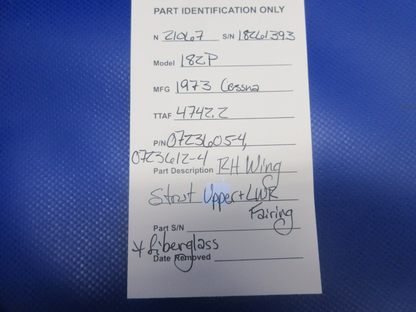 PART IDENTIFICATION ONLY
N 21067 S/N 18261393
Model 182P
MFG 1973 Cessna
TTAF 4742.2
P/N 0723605-4,
0723612-4
Part Description RH Wing
Strut Upper + LWR
Fairing
Part S/N
* fiberglass
Date Removed